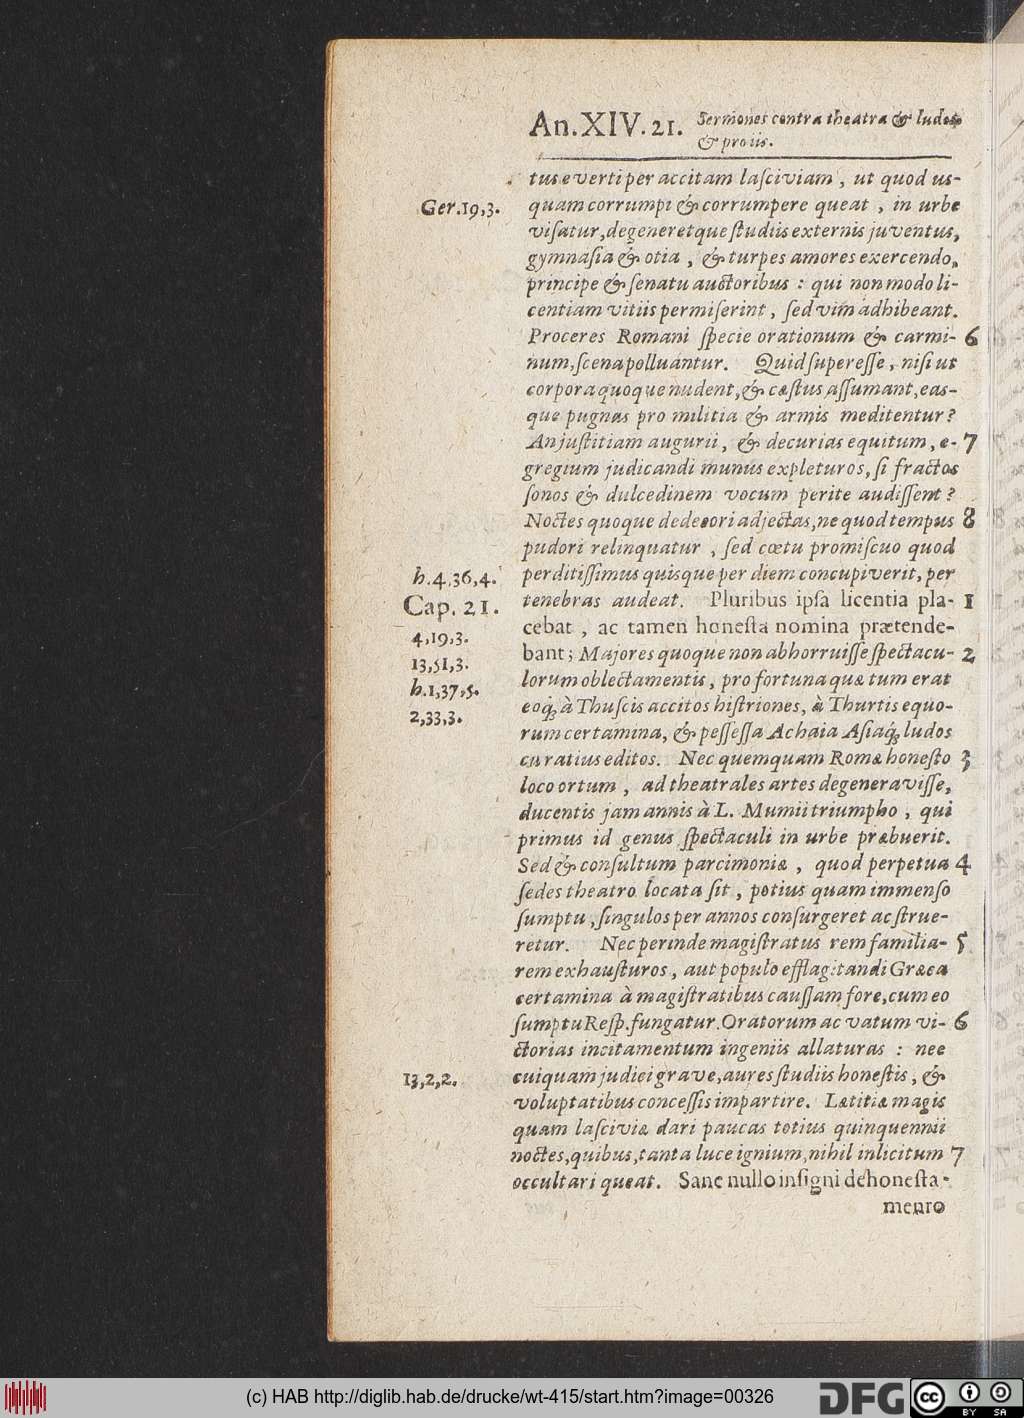 An. XIV. 21. Sermones contra theatra & ludos
& pro iis.
tus everti per accitam laſciviam, ut quod us-
Ger. 19,3. quam corrumpi & corrumpere queat, in urbe
viſatur, degeneretque ſtudiis externis juventus,
gymnaſia & otia, & turpes amores exercendo,
principe & ſenatu auctoribus : qui non modo li-
centiam vitiis permiſerint, ſed vim adhibeant.
Proceres Romani ſpecie orationum & carmi- 6
num, ſcena polluantur. Quid ſupereſſe, niſi ut
corpora quoque nudent, & cæſtus aſſumant, eas-
que pugnas pro militia & armis meditentur?
An juſtitiam augurii, & decurias equitum, e- 7
gregium judicandi munus expleturos, ſi fractos
ſonos & dulcedinem vocum perite audiſſent?
Noctes quoque dedecori adjectas, ne quod tempus 8
pudori relinquatur, ſed cœtu promiſcuo quod
h. 4,36,4. perditiſſimus quisque per diem concupiverit, per
Cap. 21. tenebras audeat. Pluribus ipſa licentia pla- 1
cebat, ac tamen honeſta nomina prætende-
4,19,3.
bant; Majores quoque non abhorruiſſe ſpectacu- 2
13,51,3.
lorum oblectamentis, pro fortuna quæ tum erat
h. 1,37,5.
eoq́; à Thuſcis accitos hiſtriones, à Thurtis equo-
2,33,3.
rum certamina, & peſſeſſa Achaia Aſiaq́; ludos
curatius editos. Nec quemquam Romæ honeſto 3
loco ortum, ad theatrales artes degeneraviſſe,
ducentis jam annis à L. Mumii triumpho, qui
primus id genus ſpectaculi in urbe præbuerit.
Sed & conſultum parcimoniæ, quod perpetua 4
ſedes theatro locata ſit, potius quam immenſo
ſumptu, ſingulos per annos conſurgeret ac ſtrue-
retur. Nec perinde magiſtratus rem familia- 5
rem exhauſturos, aut populo efflagitandi Græca
certamina à magiſtratibus cauſſam fore, cum eo
ſumptu Reſp. fungatur. Oratorum ac vatum vi- 6
ctorias incitamentum ingeniis allaturas : nec
13,2,2. cuiquam judici grave, aures ſtudiis honeſtis, &
voluptatibus conceſſis impartire. Lætitiæ magis
quam laſciviæ dari paucas totius quinquennii
noctes, quibus, tanta luce ignium, nihil inlicitum 7
occultari queat. Sane nullo inſigni dehoneſta-
mento
(c) HAB http://diglib.hab.de/drucke/wt-415/start.htm?image=00326
DFG
cc BY SA